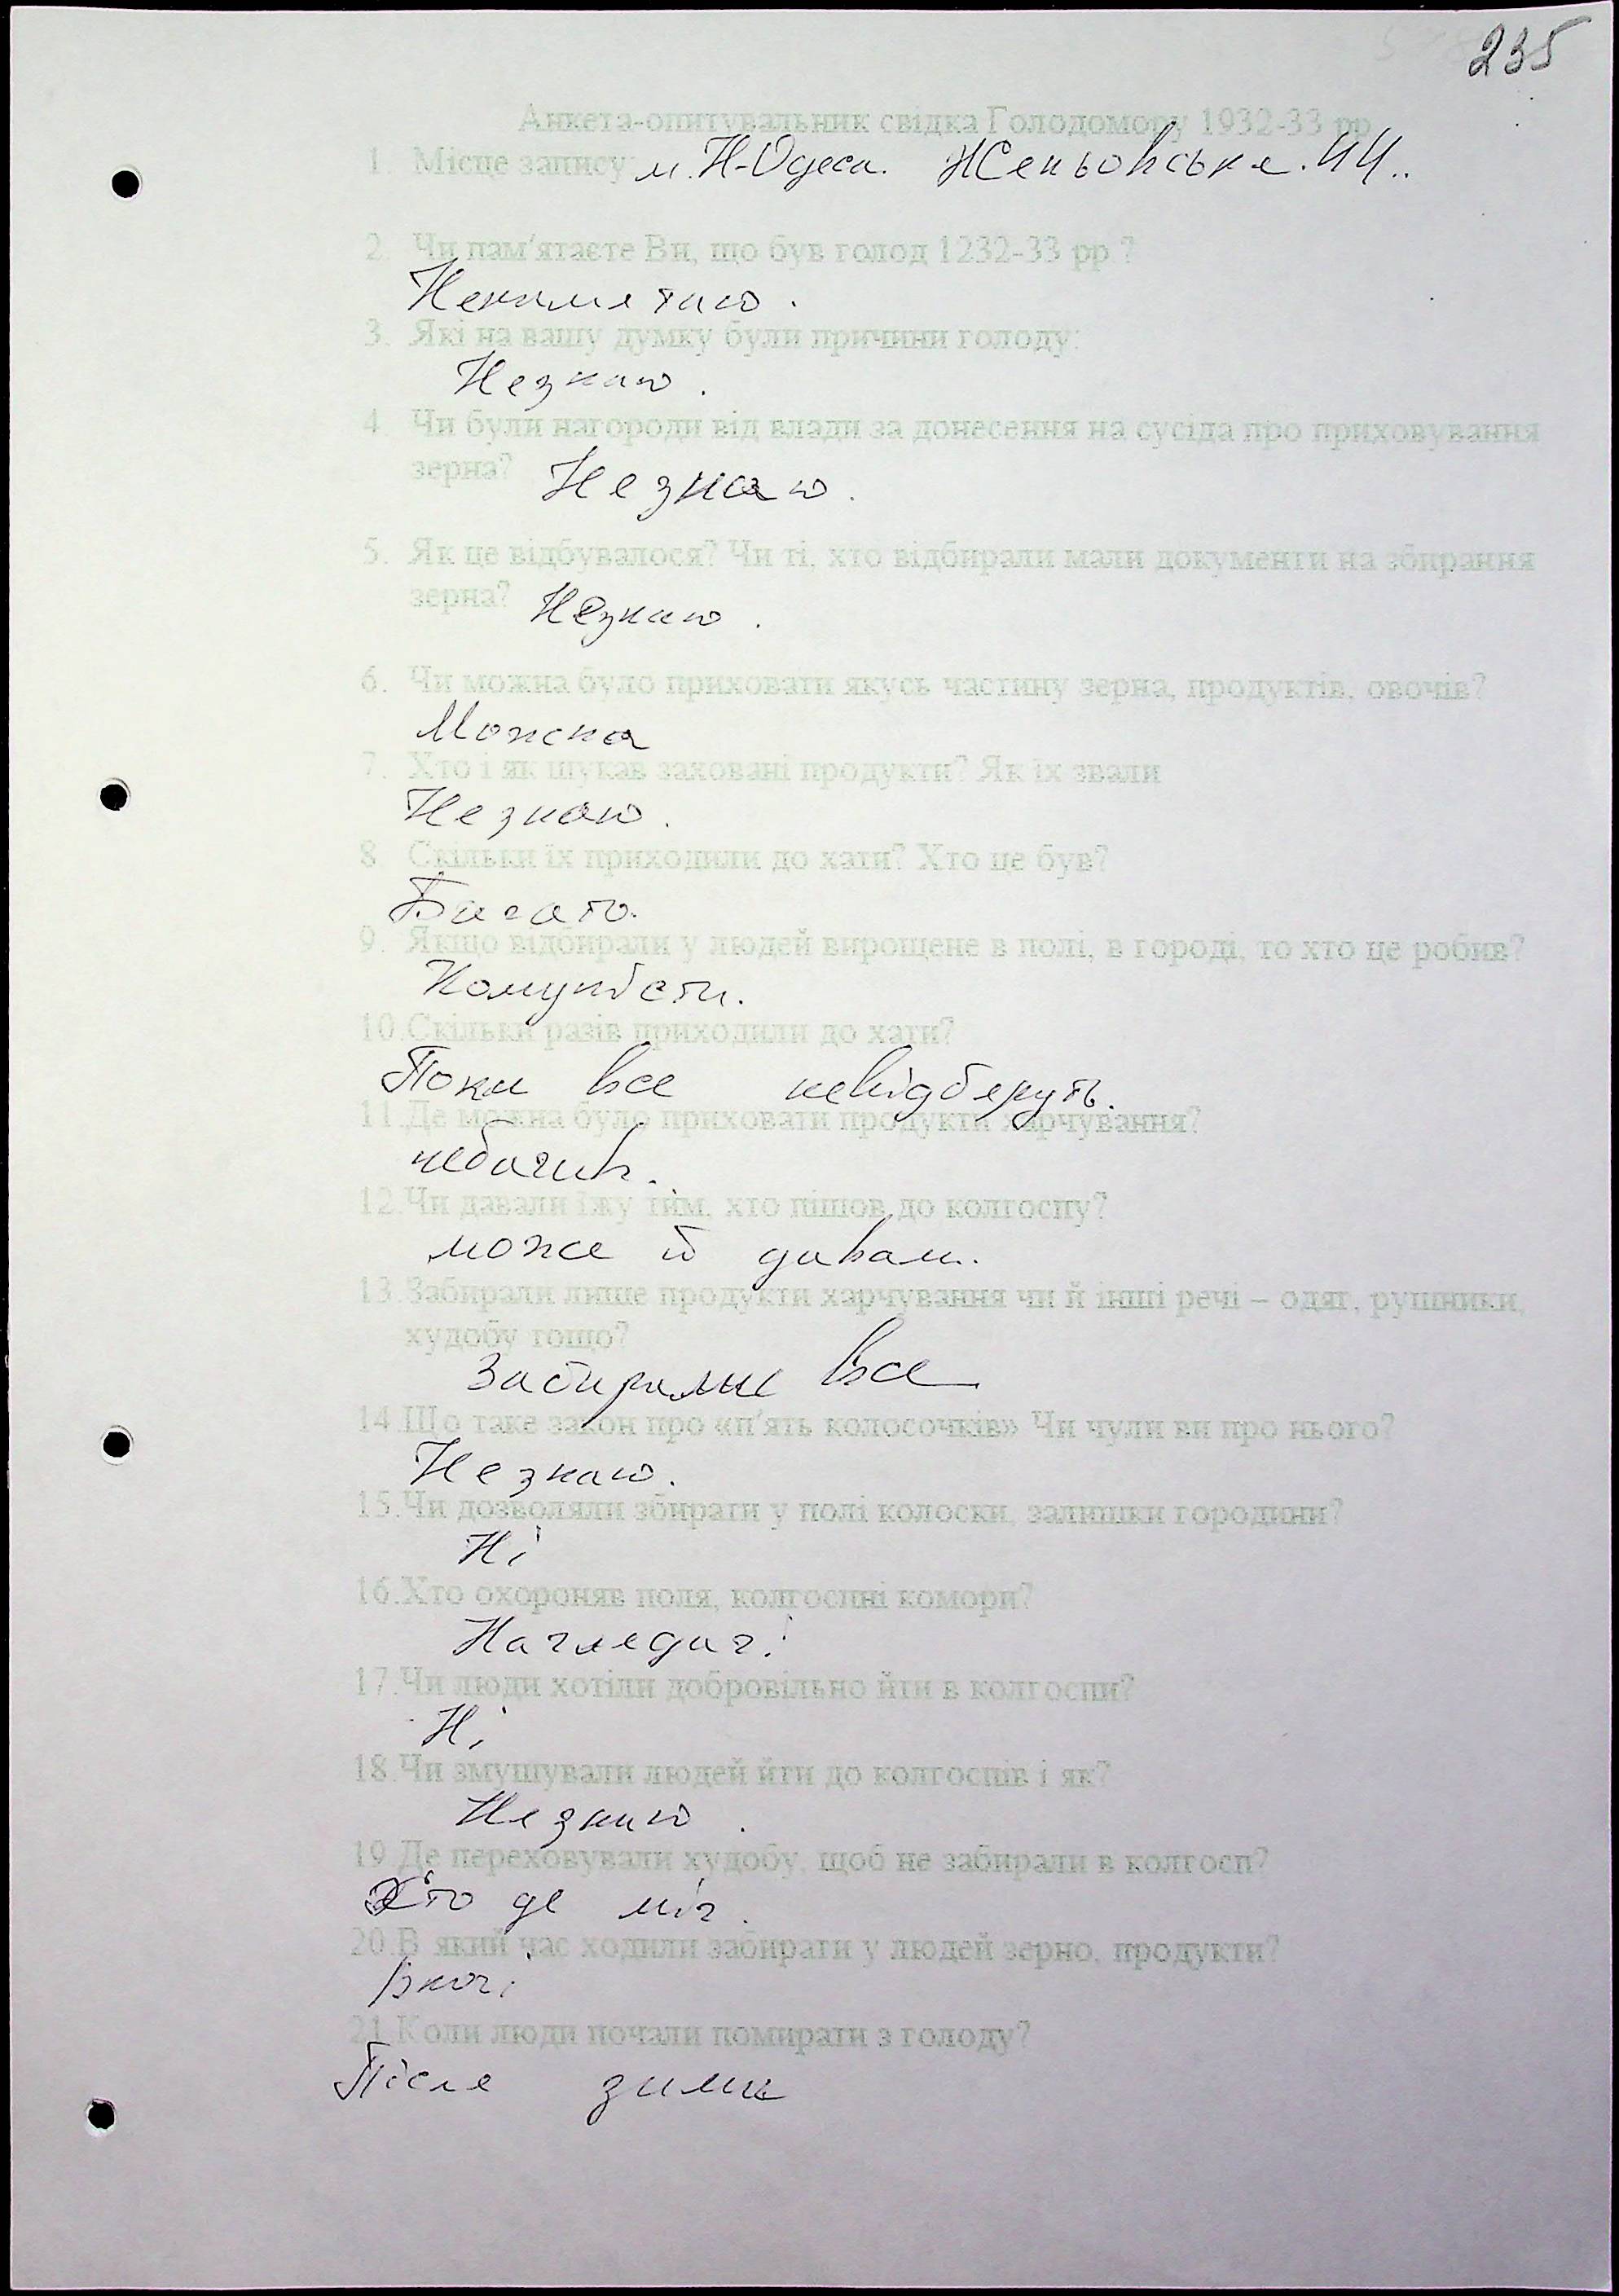 235
Анкета-опитувальник свідка Голодомору 1932-33 рр
1. Місце запису м. Н-Одеса. Женьовська. 44..
2. Чи пам'ятаєте Ви, що був голод 1232-33 рр ?
Непамятаю.
3. Які на вашу думку були причини голоду:
Незнаю.
4. Чи були нагороди від влади за донесення на сусіда про приховування
зерна? Незнаю.
5. Як це відбувалося? Чи ті, хто відбирали мали документи на збирання
зерна? Незнаю.
6. Чи можна було приховати якусь частину зерна, продуктів, овочів?
Можна
7. Хто і як шукав заховані продукти? Як їх звали
Незнаю.
8. Скільки їх приходили до хати? Хто це був?
Багато.
9. Якщо відбирали у людей вирощене в полі, в городі, то хто це робив?
Комуністи.
10. Скільки разів приходили до хати?
Поки все невідберуть.
11. Де можна було приховати продукти харчування?
небачив.
12. Чи давали їжу тим, хто пішов до колгоспу?
може й давали.
13. Забирали лише продукти харчування чи й інші речі – одяг, рушники,
худобу тощо?
Забирали все
14. Що таке закон про «п'ять колосочків» Чи чули ви про нього?
Незнаю.
15. Чи дозволяли збирати у полі колоски, залишки городини?
Ні
16. Хто охороняв поля, колгоспні комори?
Наглядачі
17. Чи люди хотіли добровільно йти в колгоспи?
Ні
18. Чи змушували людей йти до колгоспів і як?
Незнаю.
19. Де переховували худобу, щоб не забирали в колгосп?
Хто де міг.
20. В який час ходили забирати у людей зерно, продукти?
Вночі
21. Коли люди почали помирати з голоду?
Після зими